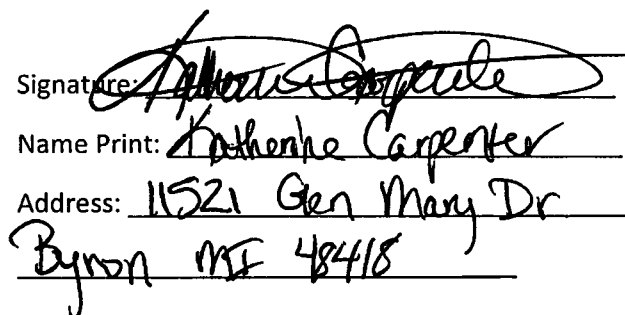 Signature: Katherine Carpenter
Name Print: Katherine Carpenter
Address: 11521 Glen Mary Dr
Byron MI 48418